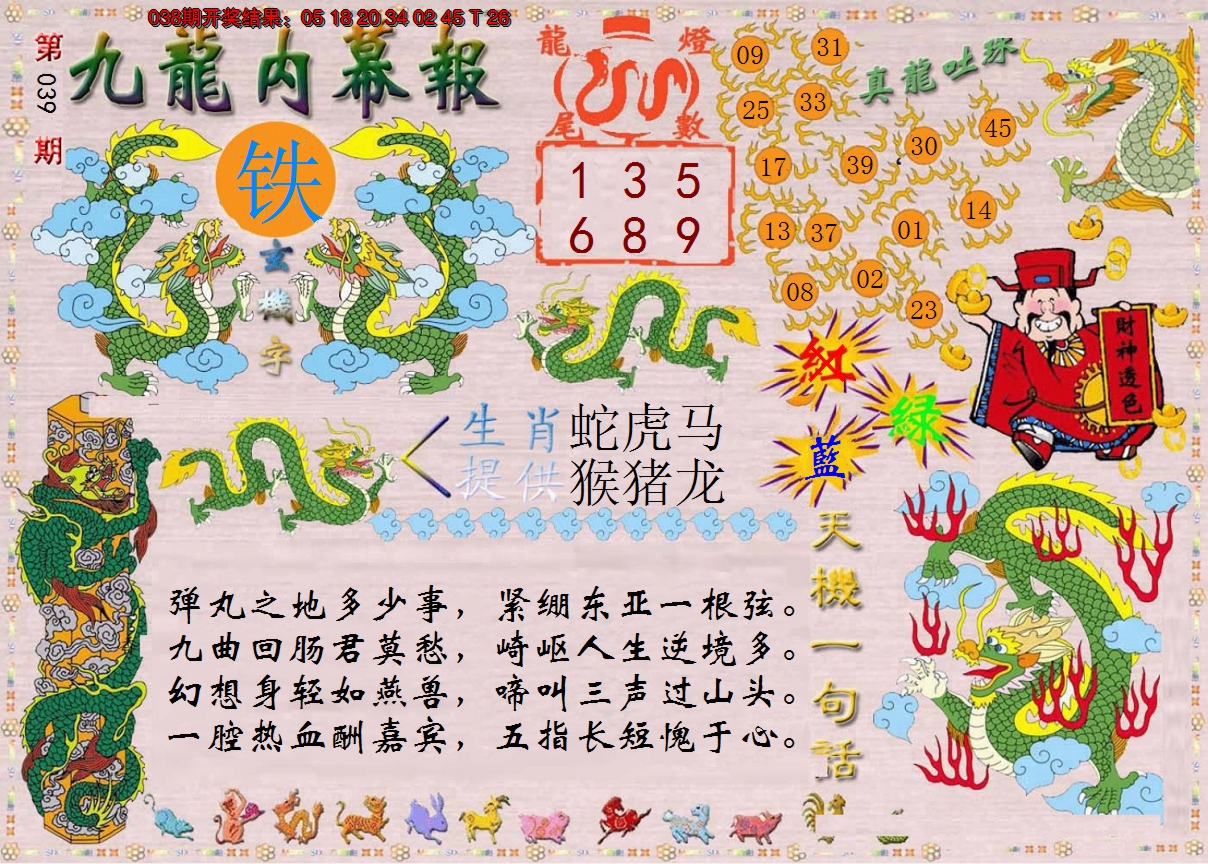 038期开奖结果：05 18 20 34 02 45 T 26
第039期
九龍内幕報
铁
玄機字
龍燈
尾數
1 3 5
6 8 9
真龍吐珠
09 31
25 33
17 39 30 45
13 37 01 14
08 02 23
財神透色
紅
綠
藍
生肖提供
蛇虎马
猴猪龙
天機一句話
弹丸之地多少事，紧绷东亚一根弦。
九曲回肠君莫愁，崎岖人生逆境多。
幻想身轻如燕兽，啼叫三声过山头。
一腔热血酬嘉宾，五指长短愧于心。